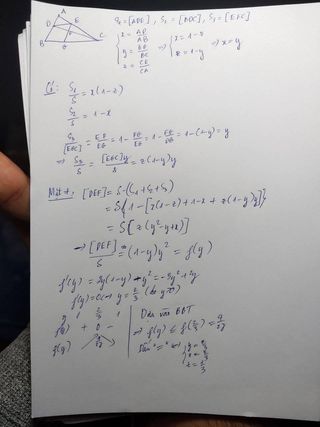 A
D E
F
B G C
S₁ = [ADE], S₂ = [BDC], S₃ = [EFC]
{ x = AD/AB
y = 
z = CE/CA
⇒ { x = 1-z
z = 1-y ⇒ x = y
S₁/S = x(1-z)
S₂/S = 1-x
S₃/[EBC] = = 1 - = 1 - = 1-(1-y) = y
⇒ S₃/S = [EBC]y/S = z(1-y)y
[DEF] = S-(S₁+S₂+S₃)
= S{1-[x(1-z)+1-x+z(1-y)y]}
= S[z(y²-y+x)]
⇒ [DEF]/S = (1-y)y² = f(y)
f'(y) = 2y(1-y) - y² = -3y²+2y
f'(y)=0 ⇔ y = 2/3 (do y>0)
y 0 2/3 1
f'(y) + 0 -
f(y) 4/27
Dựa vào BBT
⇒ f(y) ≤ f(2/3) = 4/27
Dấu "=" ⇔ { y = 2/3
x = 2/3
z = 1/3